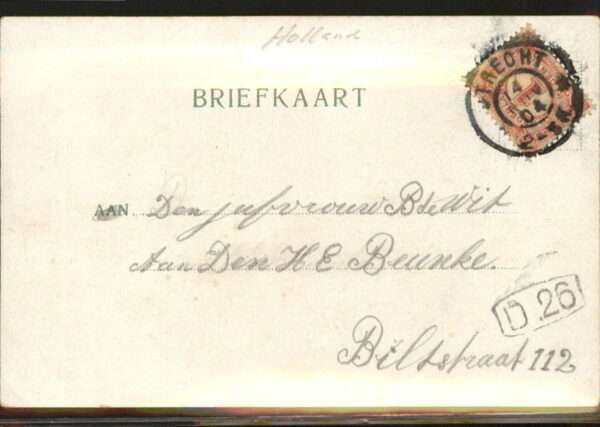 Holland
BRIEFKAART
UTRECHT
14
04
D.26
AAN Den jufvrouw B de Wit
Aan Den H E Beunke.
Biltstraat 112